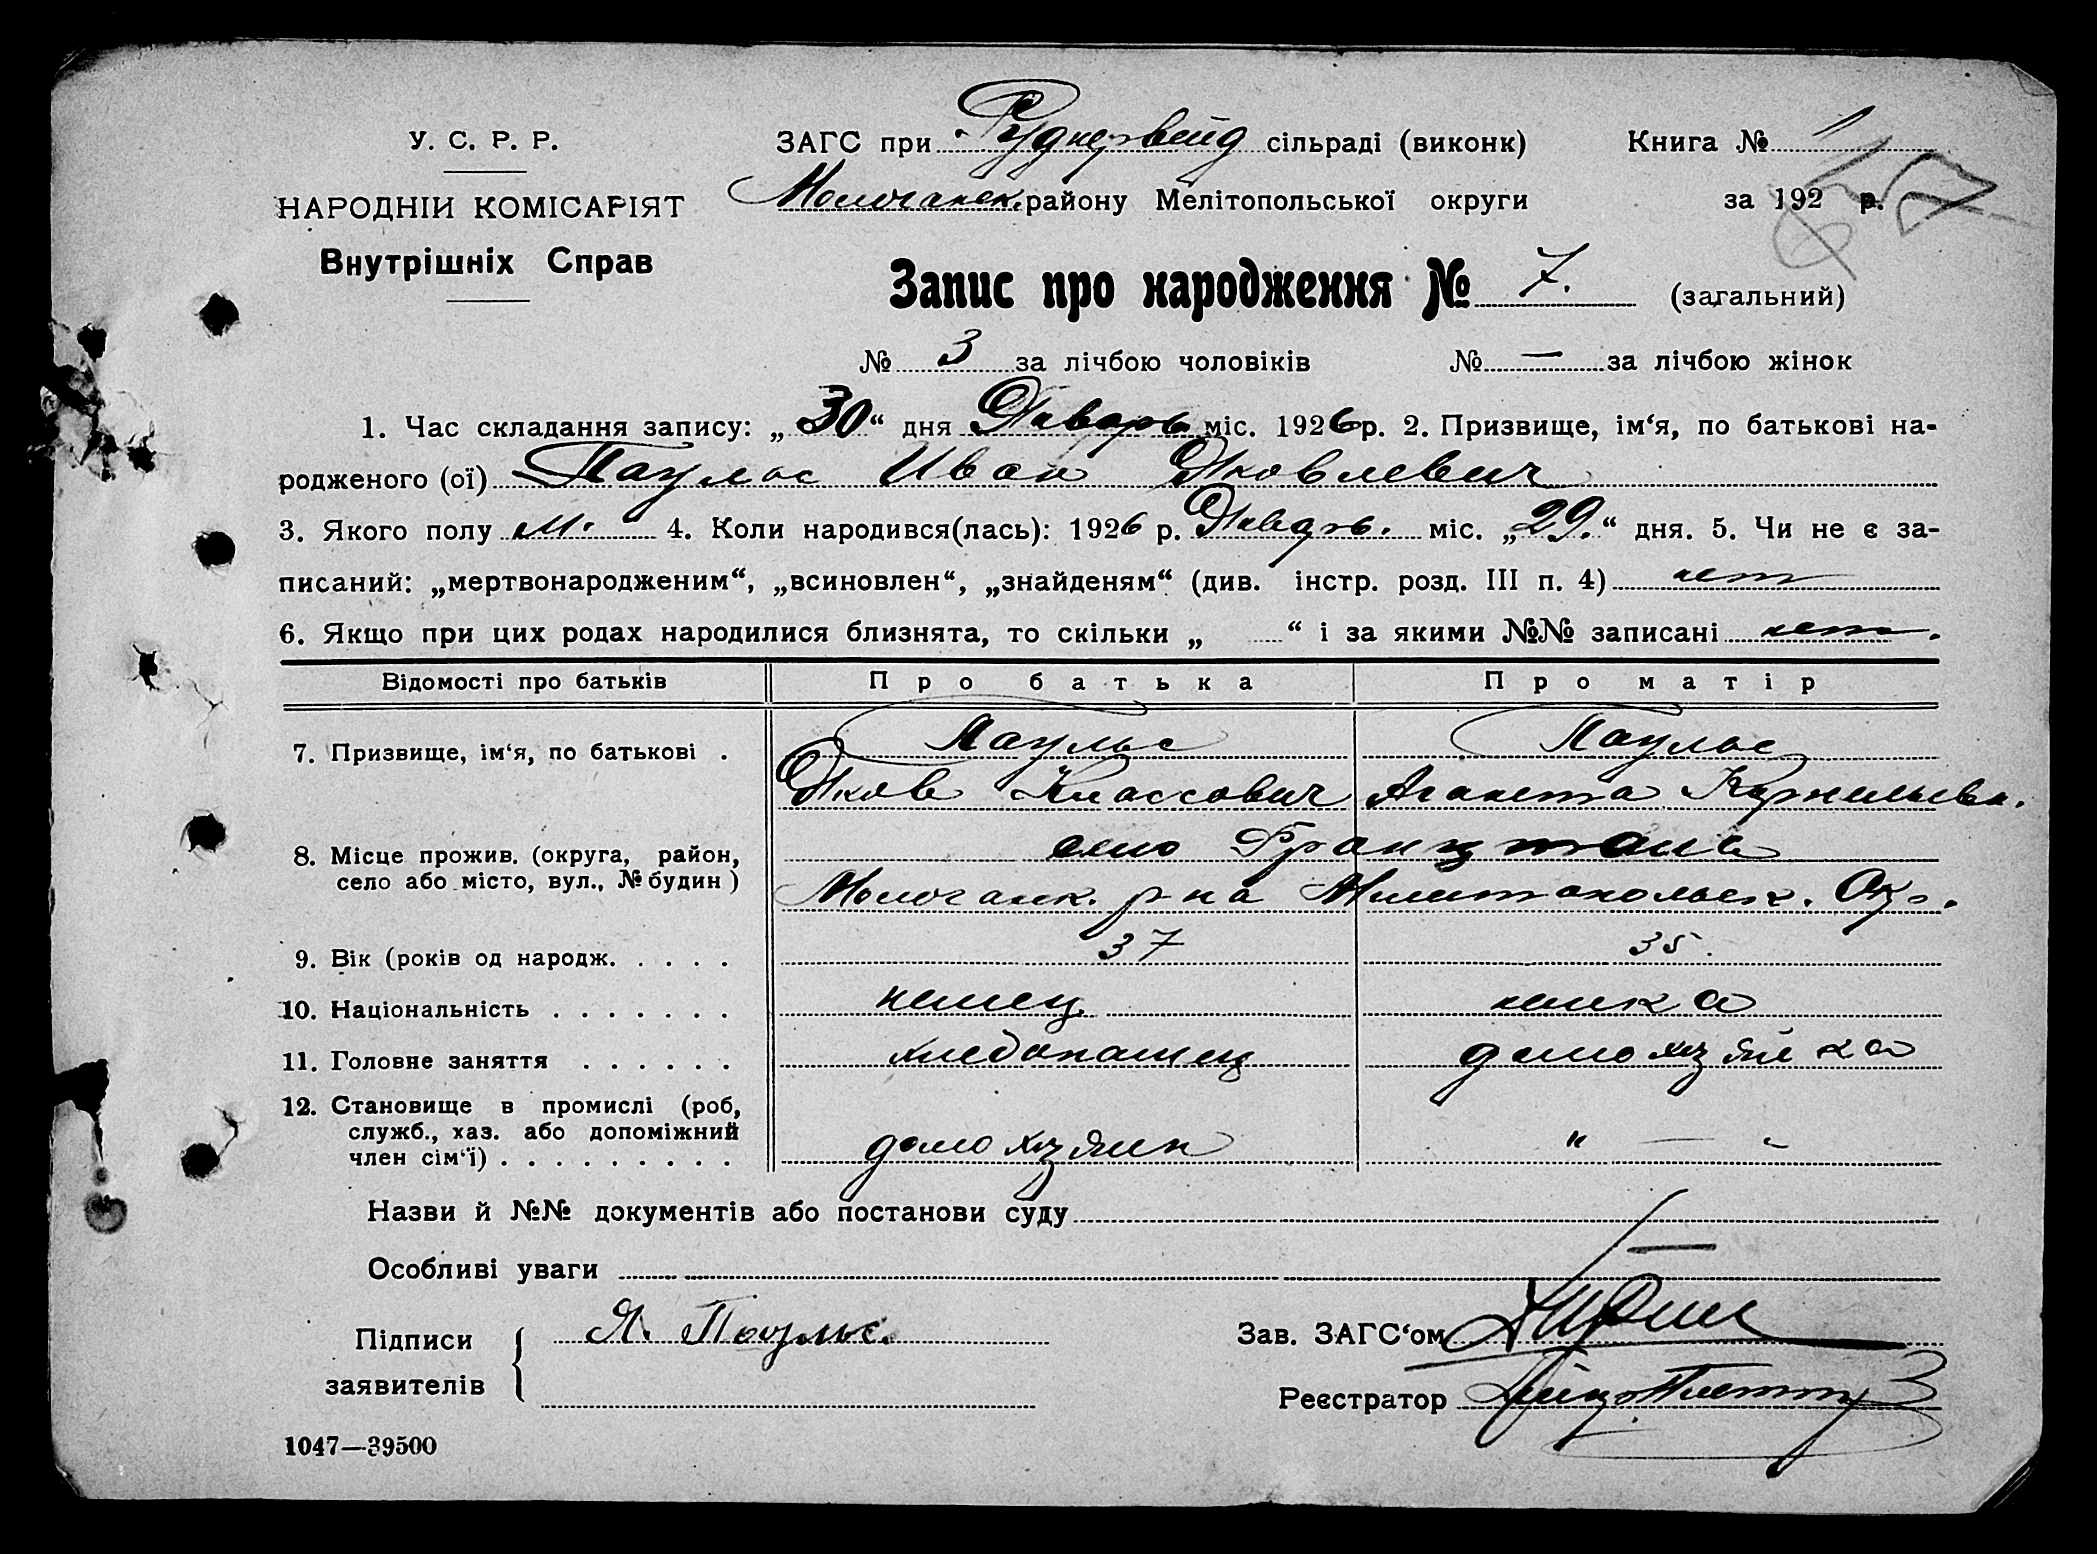 У. С. Р. Р.
НАРОДНІЙ КОМІСАРІЯТ
Внутрішніх Справ
ЗАГС при Руднервейд сільраді (виконк) Книга № 1
Молочанск. району Мелітопольської округи за 192 р.
Запис про народження № 7. (загальний)
№ 3 за лічбою чоловіків № — за лічбою жінок
1. Час складання запису: „30“ дня Январь міс. 1926 р. 2. Призвище, ім‘я, по батькові на-
родженого (ої) Паульс Иван Яковлевич
3. Якого полу м. 4. Коли народився(лась): 1926 р. Январь. міс. „29.“ дня. 5. Чи не є за-
писаний: „мертвонародженим“, „всиновлен“, „знайденям“ (див. інстр. розд. III п. 4) нет
6. Якщо при цих родах народилися близнята, то скільки „ “ і за якими №№ записані нет.
Відомості про батьків Про батька Про матір
7. Призвище, ім‘я, по батькові . Паульс Паульс
Яков Классович Аганета Корнельевн.
8. Місце прожив. (округа, район, село або місто, вул., № будин) село Францталь
Молочанск. р-на Мелитопольск. Окр.
9. Вік (років од народж. . . . . 37 35.
10. Національність . . . . . . . немец немка
11. Головне заняття . . . . . . хлебопашец домохозяйка
12. Становище в промислі (роб,
служб., хаз. або допоміжний
член сім‘ї) . . . . . . . . . домохозяин " — "
Назви й №№ документів або постанови суду
Особливі уваги
Підписи заявителів Я. Паульс.
Зав. ЗАГС‘ом
Реєстратор
1047—39500